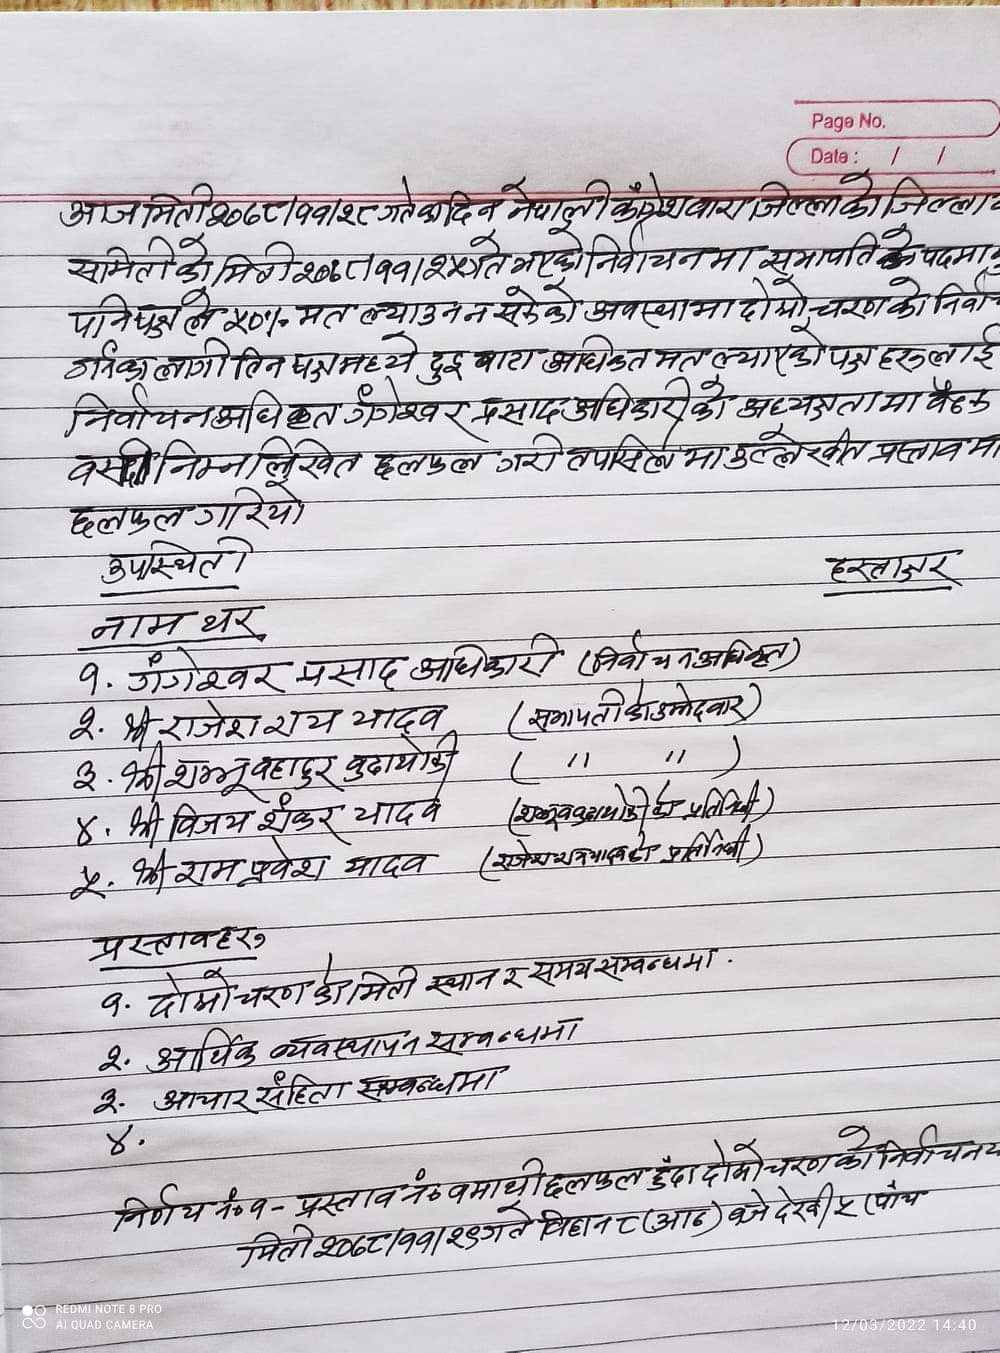 Page No.
Date : / /
आज मिती २०७८/११/२८ गतेका दिन नेपाली काँग्रेश बारा जिल्लाको जिल्ला
समितीको मिती २०७८/११/२५ गते भएको निर्वाचनमा सभापतिके पदमा
पनि पक्षले ५०% मत ल्याउन न सकेको अवस्थामा दोस्रो चरणको निर्वाच
गर्नका लागी तिन पक्ष मध्ये दुइ वटा अधिकत मत ल्याएको पक्ष हरुलाई
निर्वाचन अधिकृत गंगेश्वर प्रसाद अधिकारीको अध्यक्षतामा बैठक
वसी निम्न लिखित छलफल गरी तपसिल मा उल्लेखीत प्रस्ताव मा
छलफल गरियो
उपस्थिती हस्ताक्षर
नाम थर
१. गंगेश्वर प्रसाद अधिकारी (निर्वाचन अधिकृत)
२. श्री राजेश राय यादव (सभापतीको उम्मेदवार)
३. श्री शम्भू वहादुर वुढाथोकी ( " " )
४. श्री विजय शंकर यादव (शम्भू व बुढाथोकी को प्रतिनिधी)
५. श्री राम प्रवेश यादव (राजेश राय यादवको प्रतिनिधी)
प्रस्तावहरु
१. दोस्रो चरण को मिती स्थान र समय सम्बन्धमा .
२. आर्थिक व्यवस्थापन सम्बन्धमा
३. आचार संहिता सम्बन्धमा
४.
निर्णय नं० १ - प्रस्ताव नं० १ माथी छलफल हुँदा दोस्रो चरणको निर्वाचन
मिती २०७८/११/२९ गते विहान ८ (आठ) वजे देखी ५ (पाँच
REDMI NOTE 8 PRO
AI QUAD CAMERA
12/03/2022 14:40